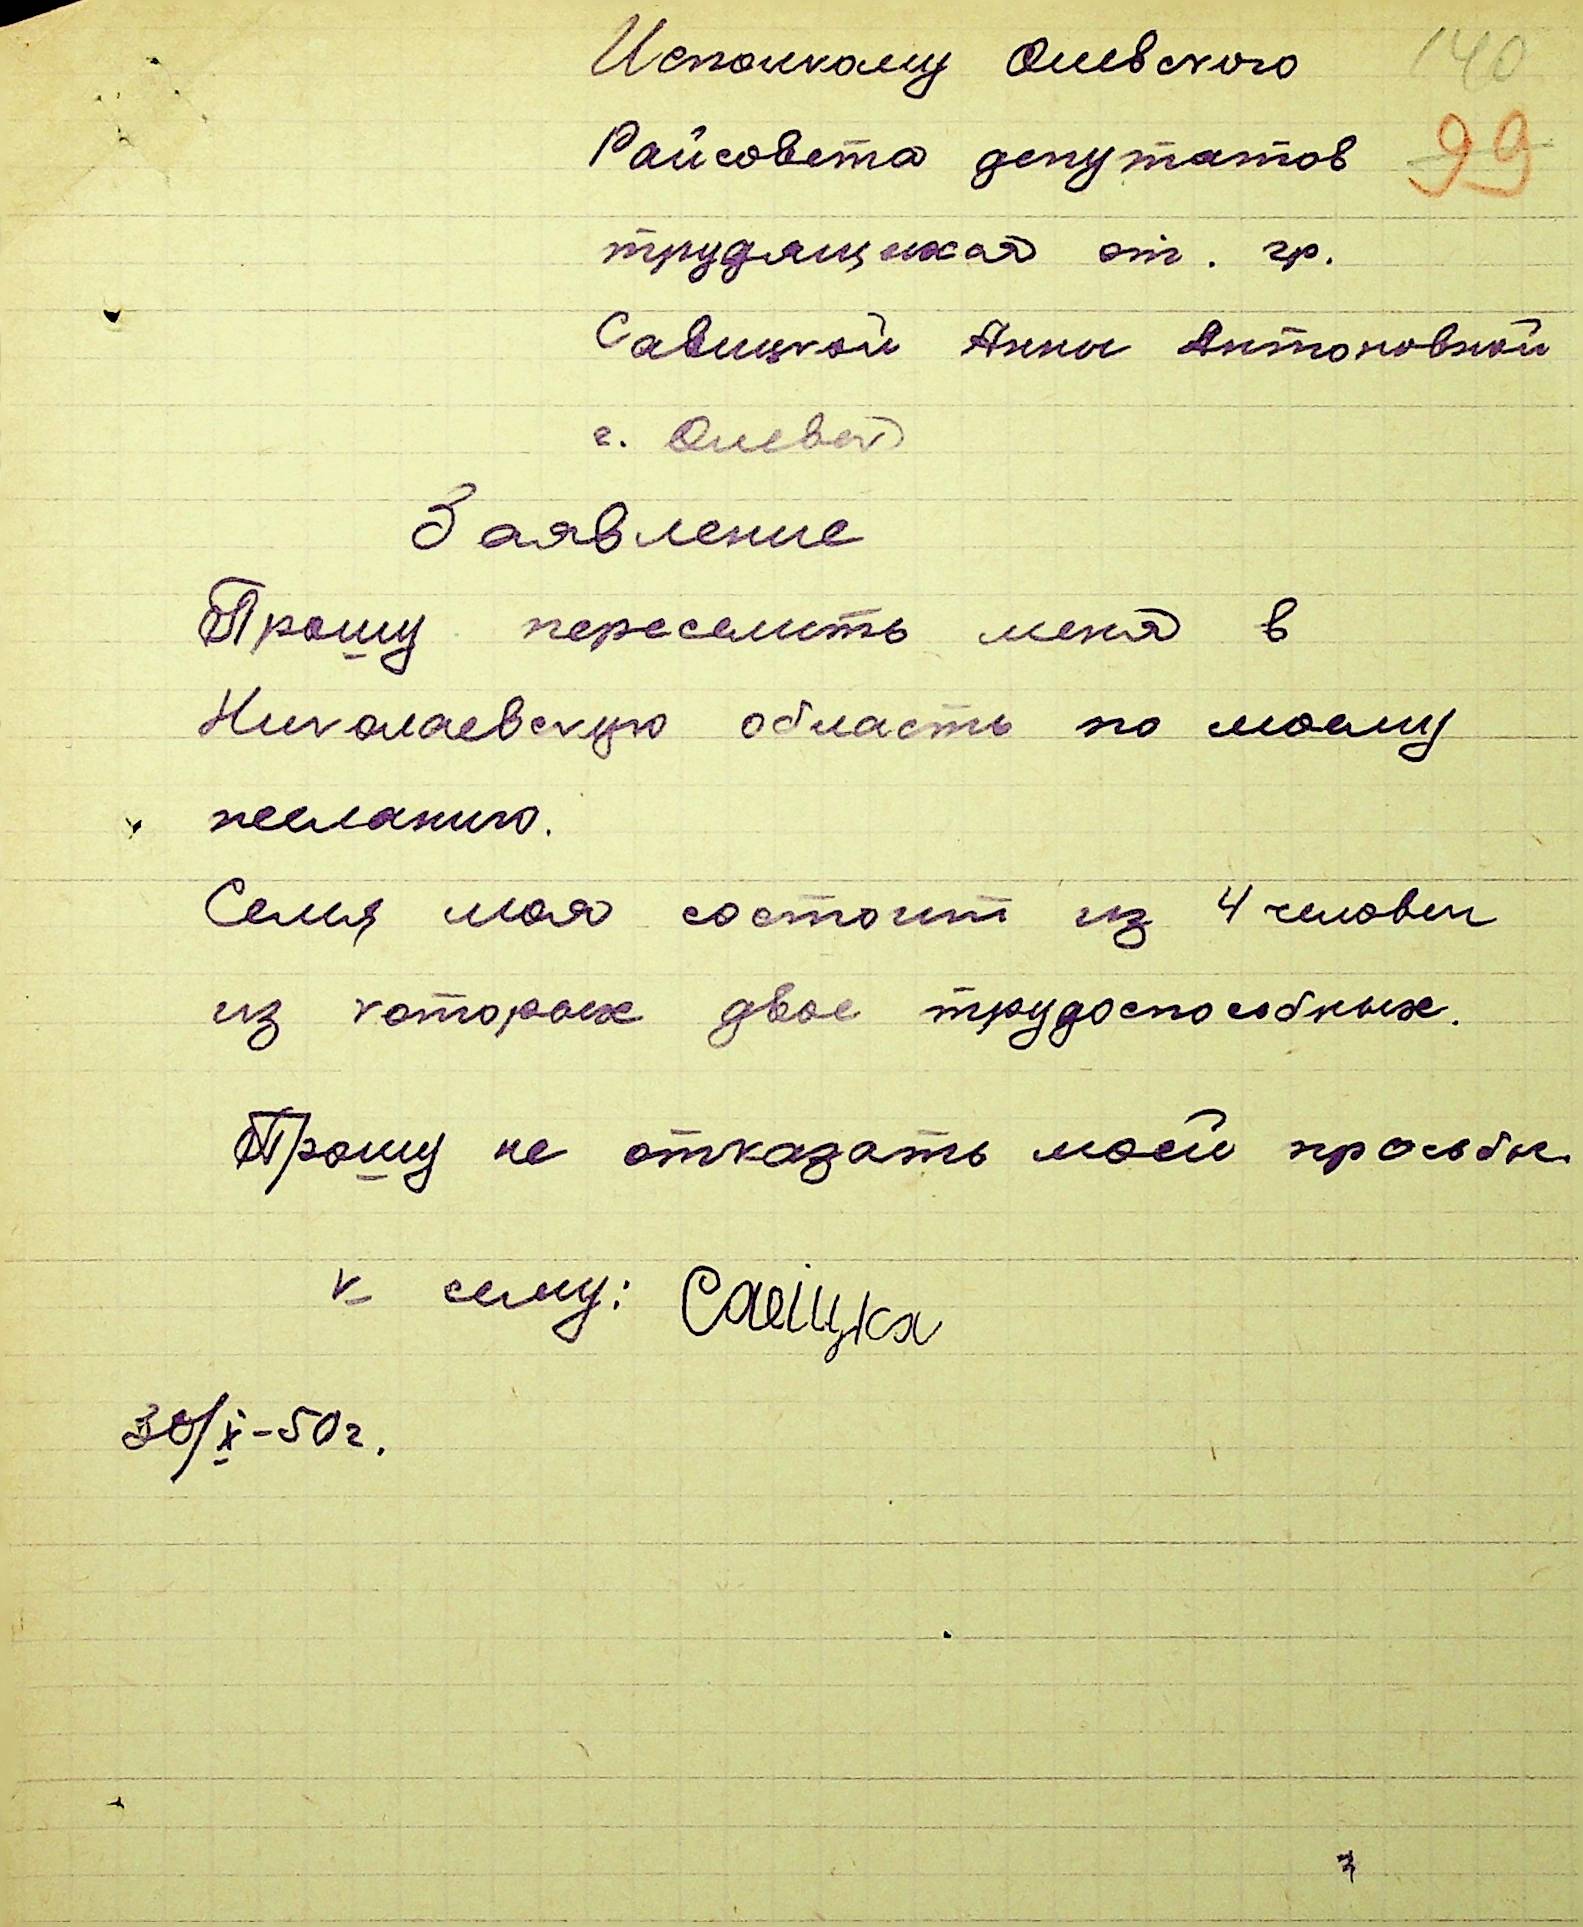 Исполкому Олевского
140
Райсовета депутатов
99
трудящихся от. гр.
Савицкой Анны Антоновной
г. Олевск
Заявление
Прошу переселить меня в
Николаевскую область по моему
желанию.
Семя моя состоит из 4 человек
из которых двое трудоспособных.
Прошу не отказать моей просьбы.
к сему: Савіцка
30/X-50г.